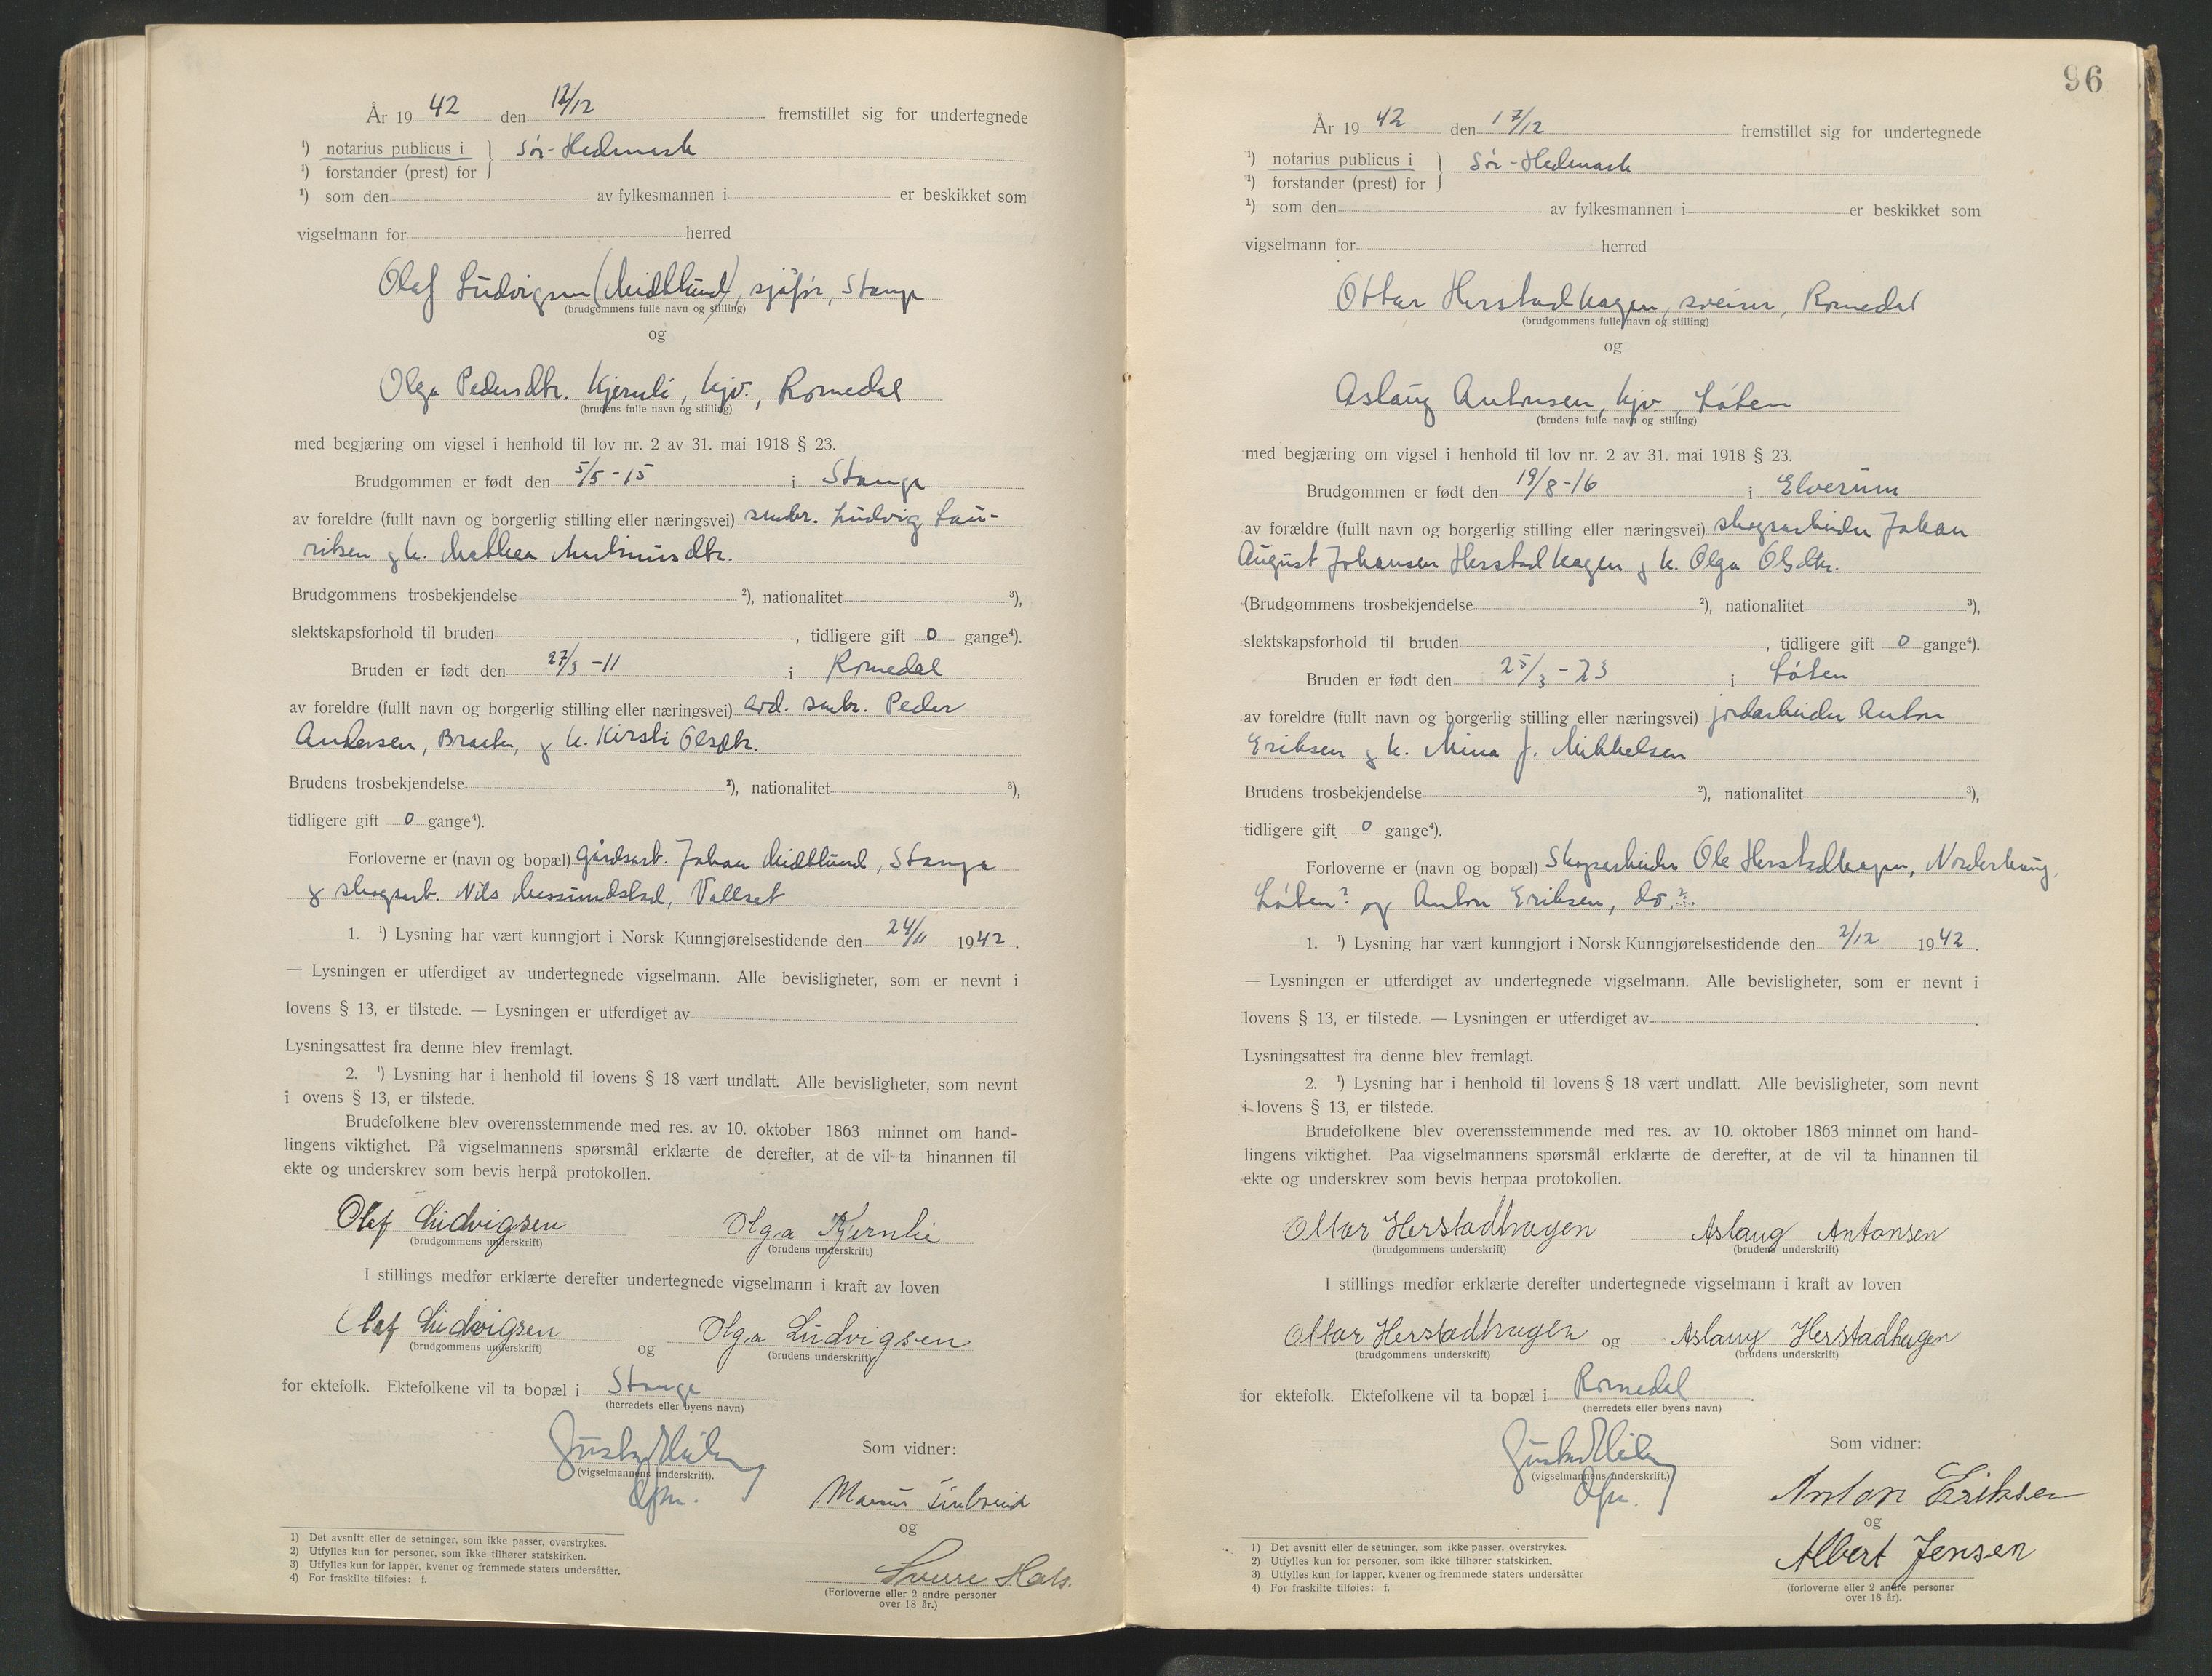 År 1942 den 12/12 fremstillet sig for undertegnede
¹) notarius publicus i } Sør-Hedmark
¹) forstander (prest) for
¹) som den av fylkesmannen i er beskikket som
vigselmann for herred
Olaf Ludvigsen (Midtlund), sjåfør, Stange
(brudgommens fulle navn og stilling)
og
Olga Pedersdtr. Kjernli, hjv., Romedal
(brudens fulle navn og stilling)
med begjæring om vigsel i henhold til lov nr. 2 av 31. mai 1918 § 23.
Brudgommen er født den 5/5-15 i Stange
av foreldre (fullt navn og borgerlig stilling eller næringsvei) småbr. Ludvig Lau-
ritsen og h. Mathea Martinusdtr.
Brudgommens trosbekjendelse ²), nationalitet ³),
slektskapsforhold til bruden , tidligere gift 0 gange⁴).
Bruden er født den 27/3 -11 i Romedal
av foreldre (fullt navn og borgerlig stilling eller næringsvei) avd. småbr. Peder
Andersen, og h. Kirsti Olsdtr.
Brudens trosbekjendelse ²), nationalitet ³),
tidligere gift 0 gange⁴).
Forloverne er (navn og bopæl) gårdsarb. Johan Midtlund, Stange
og skogsarb. Nils Messundstad, Vallset
1. ¹) Lysning har vært kunngjort i Norsk Kunngjørelsestidende den 24/11 1942.
— Lysningen er utferdiget av undertegnede vigselmann. Alle bevisligheter, som er nevnt i
lovens § 13, er tilstede. — Lysningen er utferdiget av
Lysningsattest fra denne blev fremlagt.
2. ¹) Lysning har i henhold til lovens § 18 vært undlatt. Alle bevisligheter, som nevnt
i ovens § 13, er tilstede.
Brudefolkene blev overensstemmende med res. av 10. oktober 1863 minnet om hand-
lingens viktighet. På vigselmannens spørsmål erklærte de derefter, at de vil ta hinannen til
ekte og underskrev som bevis herpå protokollen.
Olaf Ludvigsen Olga Kjernlie
(brudgommens underskrift) (brudens underskrift)
I stillings medfør erklærte derefter undertegnede vigselmann i kraft av loven
Olaf Ludvigsen og Olga Ludvigsen
(brudgommens underskrift) (brudens underskrift)
for ektefolk. Ektefolkene vil ta bopæl i Stange
(herredets eller byens navn)
Som vidner:
(vigselmannens underskrift).
og
Sverre Hals.
(Forloverne eller 2 andre personer
over 18 år.)
1) Det avsnitt eller de setninger, som ikke passer, overstrykes.
2) Utfylles kun for personer, som ikke tilhører statskirken.
3) Utfylles kun for lapper, kvener og fremmede staters undersåtter.
4) For fraskilte tilføies: f.
96
År 1942 den 17/12 fremstillet sig for undertegnede
¹) notarius publicus i } Sør-Hedmark
¹) forstander (prest) for
¹) som den av fylkesmannen i er beskikket som
vigselmann for herred
Ottar Herstadhagen, sveiser, Romedal
(brudgommens fulle navn og stilling)
og
Aslaug Antonsen, hjv., Løten
(brudens fulle navn og stilling)
med begjæring om vigsel i henhold til lov nr. 2 av 31. mai 1918 § 23.
Brudgommen er født den 19/8-16 i Elverum
av forældre (fullt navn og borgerlig stilling eller næringsvei) skogsarbeider Johan
August Johansen Herstadhagen og h. Olga Olsdtr.
(Brudgommens trosbekjendelse ²), nationalitet ³),
slektskapsforhold til bruden , tidligere gift 0 gange⁴).
Bruden er født den 25/3 - 23 i Løten
av foreldre (fullt navn og borgerlig stilling eller næringsvei) jordarbeider Anton
Eriksen og h. Mina J. Mikkelsen
Brudens trosbekjendelse ²), nationalitet ³),
tidligere gift 0 gange⁴).
Forloverne er (navn og bopæl) Skogsarbeider Ole Herstadhagen, Nordenhaug,
Løten? og Anton Eriksen, do.?
1. ¹) Lysning har vært kunngjort i Norsk Kunngjørelsestidende den 2/12 1942.
— Lysningen er utferdiget av undertegnede vigselmann. Alle bevisligheter, som er nevnt i
lovens § 13, er tilstede. — Lysningen er utferdiget av .
Lysningsattest fra denne blev fremlagt.
2. ¹) Lysning har i henhold til lovens § 18 vært undlatt. Alle bevisligheter, som nevnt
i lovens § 13, er tilstede.
Brudefolkene blev overensstemmende med res. av 10. oktober 1863 minnet om hand-
lingens viktighet. Paa vigselmannens spørsmål erklærte de derefter, at de vil ta hinannen til
ekte og underskrev som bevis herpaa protokollen.
Ottar Herstadhagen Aslaug Antonsen
(brudgommens underskrift) (brudens underskrift)
I stillings medfør erklærte derefter undertegnede vigselmann i kraft av loven
Ottar Herstadhagen og Aslaug Herstadhagen
(brudgommens underskrift) (brudens underskrift)
for ektefolk. Ektefolkene vil ta bopæl i Romedal.
(herredets eller byens navn)
Som vidner:
(vigselmannens underskrift.)
Anton Eriksen
og
Albert Jensen
(forloverne eller 2 andre personer
over 18 år).
1) Det avsnitt eller de setninger, som ikke passer, overstrykes.
2) Utfylles kun for personer, som ikke tilhører statskirken.
3) Utfylles kun for lapper, kvener og fremmede staters undersåtter
4) For fraskilte tilføies: f.